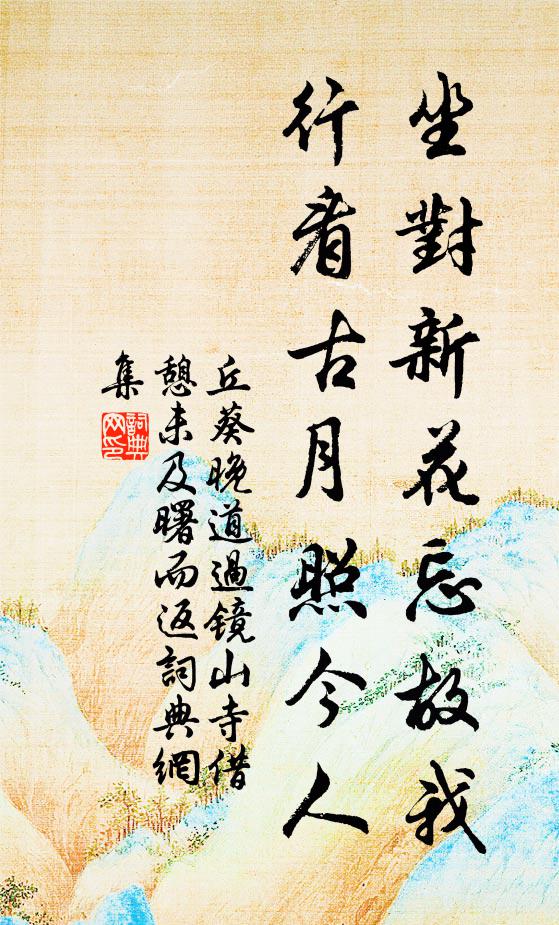 坐對新花忘故我
行看古月照今人
丘葵晚道過鏡山寺借
憩未及曙而返詞典網
集
詞典
网印